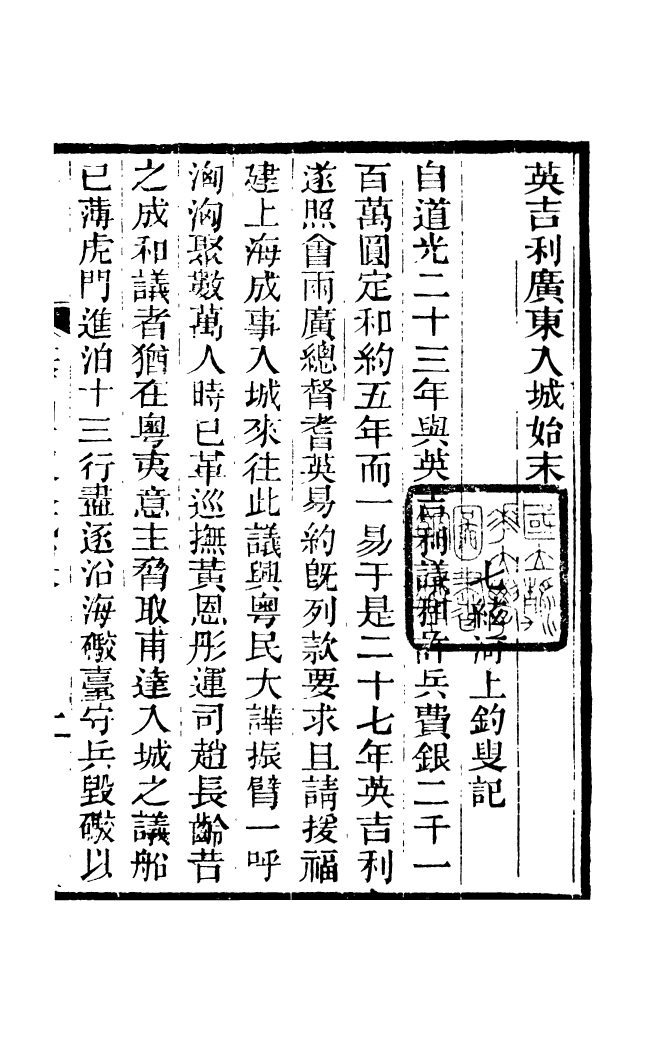 英吉利廣東入城始末
七絃河上釣叟記
自道光二十三年與英吉利議和許兵費銀二千一
百萬圓定和約五年而一易于是二十七年英吉利
遂照會兩廣總督耆英易約旣列款要求且請援福
建上海成事入城來往此議興粵民大譁振臂一呼
洶洶聚數萬人時已革巡撫黃恩彤運司趙長齡昔
之成和議者猶在粵夷意主脅取甫達入城之議船
已薄虎門進泊十三行盡逐沿海礮臺守兵毀礮以